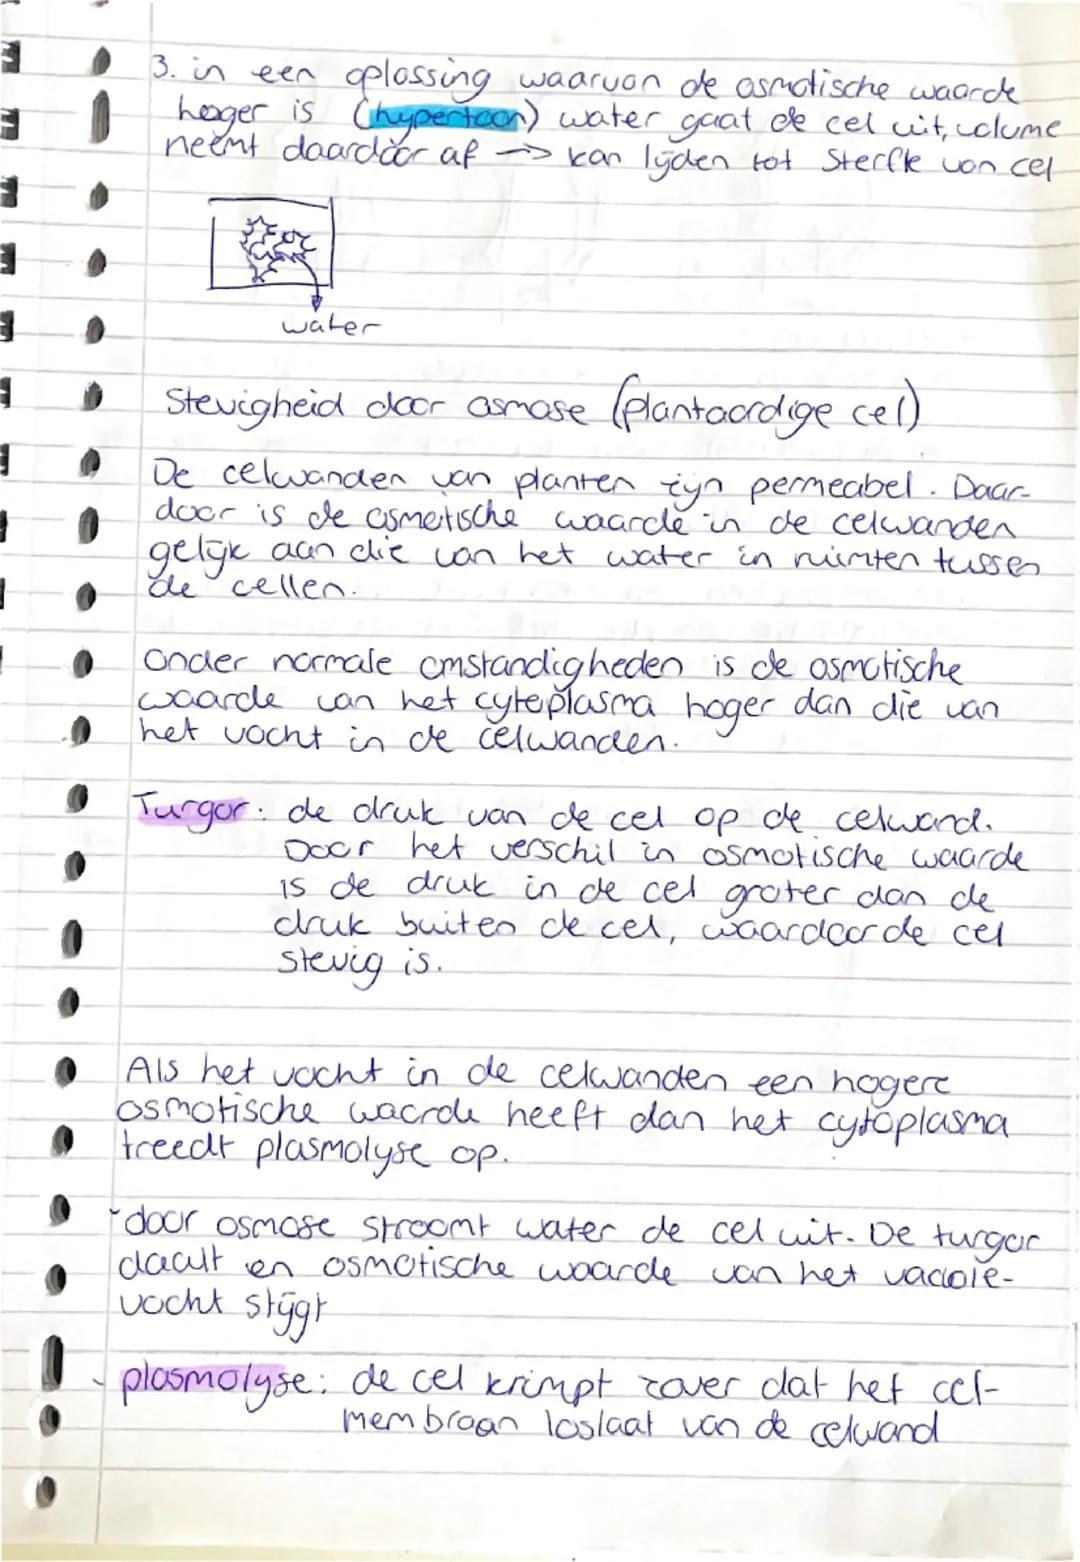 3. in een oplossing waarvan de osmotische waarde
hoger is (hypertoon) water gaat de cel uit, volume
neemt daardoor af → kan lijden tot sterfte van cel
water
Stevigheid door osmose (plantaardige cel)
De celwanden van planten zijn permeabel. Daar-
door is de osmotische waarde in de celwanden
gelijk aan die van het water in ruimten tussen
de cellen.
Onder normale omstandigheden is de osmotische
waarde van het cytoplasma hoger dan die van
het vocht in de celwanden.
Turgor: de druk van de cel op de celwand.
Door het verschil in osmotische waarde
is de druk in de cel groter dan de
druk buiten de cel, waardoor de cel
stevig is.
Als het vocht in de celwanden een hogere
osmotische waarde heeft dan het cytoplasma
treedt plasmolyse op.
- door osmose stroomt water de cel uit. De turgor
daalt en osmotische waarde van het vacuole-
vocht stijgt
- plasmolyse: de cel krimpt zover dat het cel-
membraan loslaat van de celwand